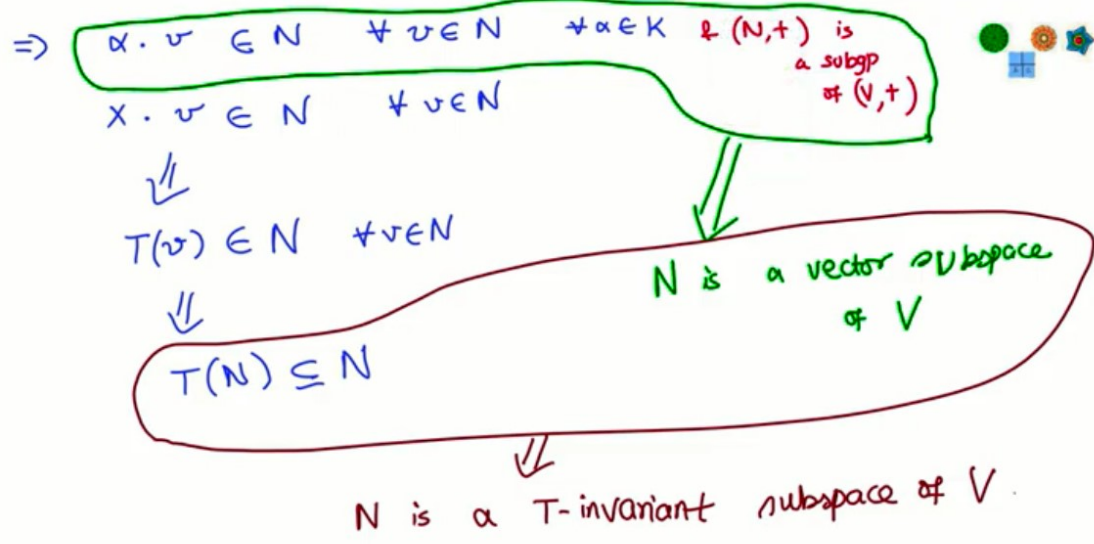 ⇒ α · v ∈ N ∀ v ∈ N ∀ α ∈ K & (N,+) is
a subgp
of (V,+)
X · v ∈ N ∀ v ∈ N
⇓
T(v) ∈ N ∀ v ∈ N
N is a vector subspace
of V
⇓
T(N) ⊆ N
⇓
N is a T-invariant subspace of V.